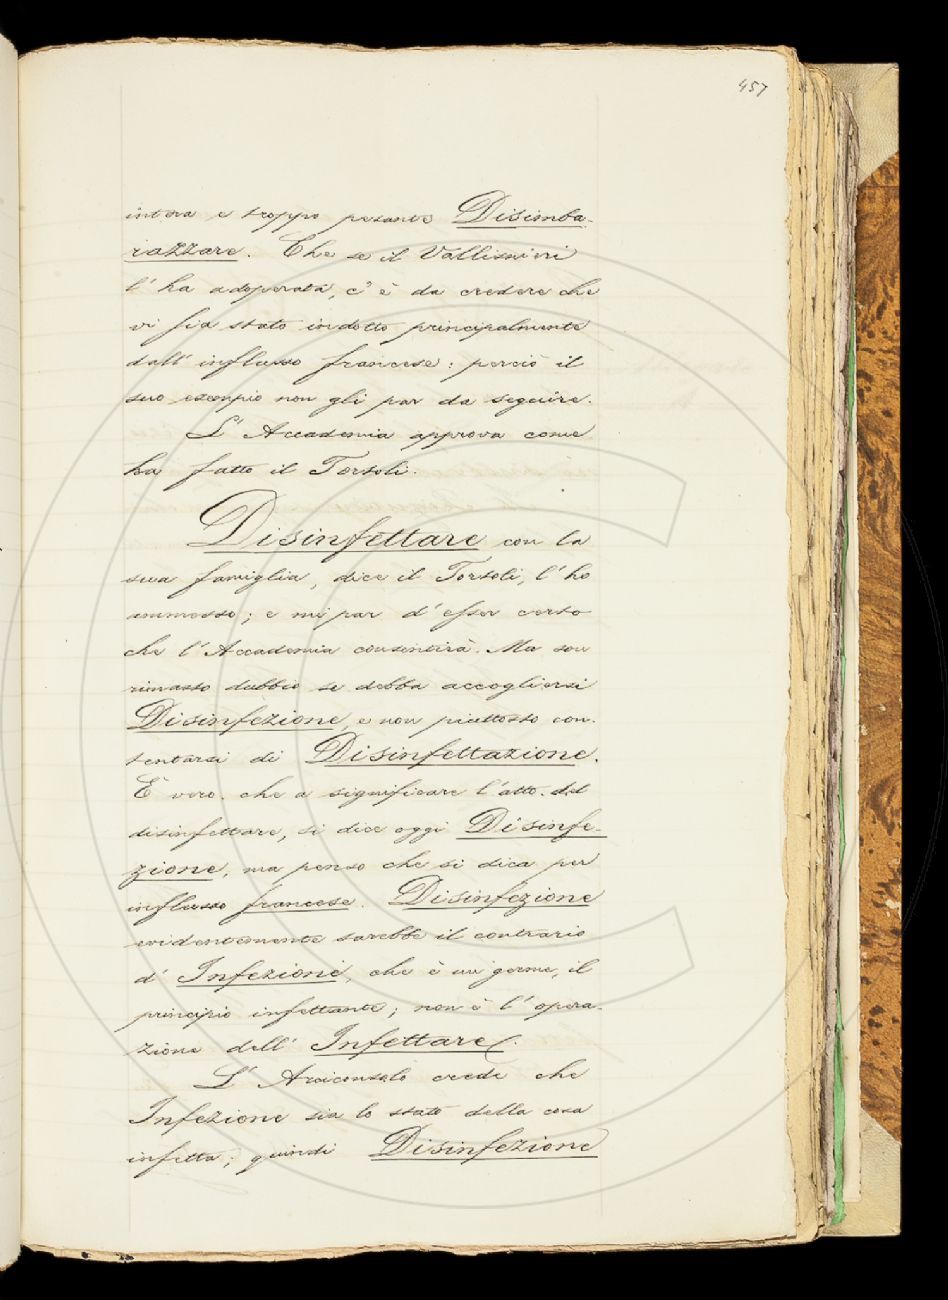 457
intera e troppo pesante Disimba-
razzare. Che se il Vallisnieri
l'ha adoperata, c'è da credere che
vi sia stato indotto principalmente
dall'influsso francese: perciò il
suo esempio non gli par da seguire.
L'Accademia approva come
ha fatto il Tortoli.
Disinfettare con la
sua famiglia, dice il Tortoli, l'ho
ammesso; e mi par d'esser certo
che l'Accademia consentirà. Ma son
rimasto dubbio se debba accogliersi
Disinfezione, e non piuttosto con-
tentarsi di Disinfettazione.
È vero che a significare l'atto del
disinfettare, si dice oggi Disinfe-
zione, ma penso che si dica per
influsso francese. Disinfezione
evidentemente sarebbe il contrario
d'Infezione, che è un germe, il
principio infettante; non è l'opera-
zione dell'Infettare.
L'Arciconsolo crede che
Infezione sia lo stato della cosa
infetta; quindi Disinfezione